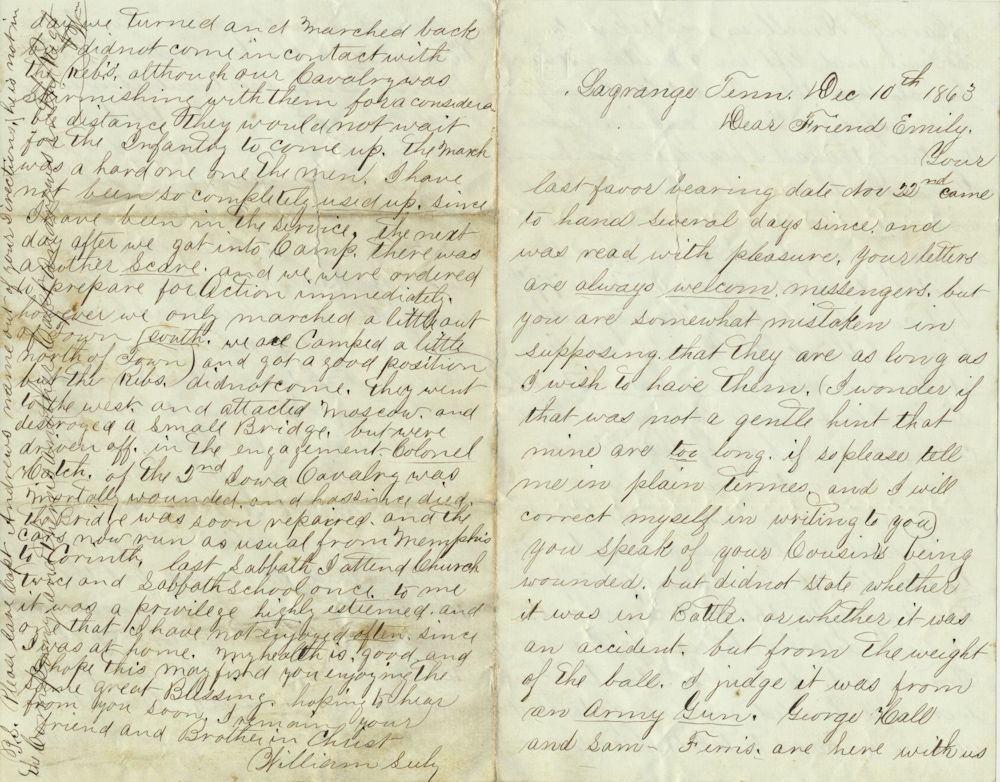 Lagrange Tenn. Dec 10th 1863
Dear Friend Emily.
Your
last favor bearing date Nov 22nd came
to hand several days since. and
was read with pleasure. Your letters
are always welcom messengers. but
you are somewhat mistaken in
supposing that they are as long as
I wish to have them. (I wonder if
that was not a gentle hint that
mine are too long. if so please tell
me in plain termes, and I will
correct myself in writing to you)
you speak of your Cousin's being
wounded. but didnot state whether
it was in Battle. or whether it was
an accident. but from the weight
of the ball. I judge it was from
an Army Gun. George Hall
and Sam- Ferris. are here with us
day we turned and marched back
didnot come in contact with
the Rebs. although our Cavalry was
skirmishing with them for a considera
distance they would not wait
for the Infantry to come up. The march
was a hard one one the men. I have
not been so completely used up. since
I have been in the service, the next
day after we got into Camp. there was
another Scare. and we were ordered
to prepare for Action immediately.
however we only marched a little out
of Town (south. we are Camped a little
north of Town) and got a good position
but the Rebs. didnot come. they went
to the west. and attacted Moscow. and
destroyed a Small Bridge. but were
driven off. in the engagement Colonel
Hatch. of the 2nd Iowa Cavalry was
Mortally wounded. and has since died.
the Bridge was soon repaired. and the
cars now run as usual from Memphis
to Corinth. last Sabbath I attend Church
twice and Sabbath School once. to me
it was a privilege highly estiemed. and
one that I have not enjoyed often. since
I was at home. My health is good. and
I hope this may find you enjoying the
same great Blessing. hoping to hear
from you soon. I remain your
friend and Brother in Christ
William
P.S. Please leave Capt Andrews name out of your directions, he is not in